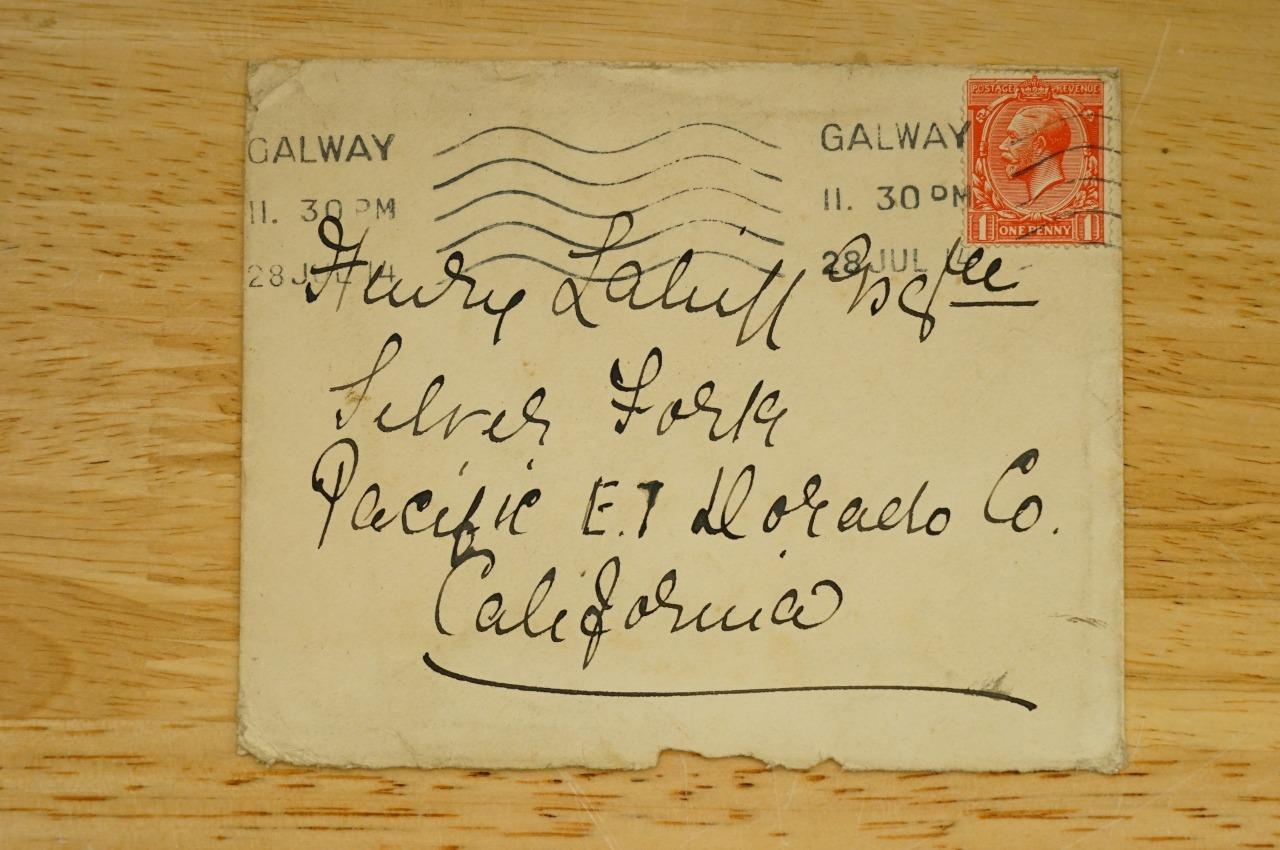 POSTAGE REVENUE
1 ONE PENNY 1
GALWAY GALWAY
11. 30 PM 11. 30 PM
28 JUL 14 28 JUL 14
Henry Lahiff Esqre
Silver Fork
Pacific El Dorado Co.
California